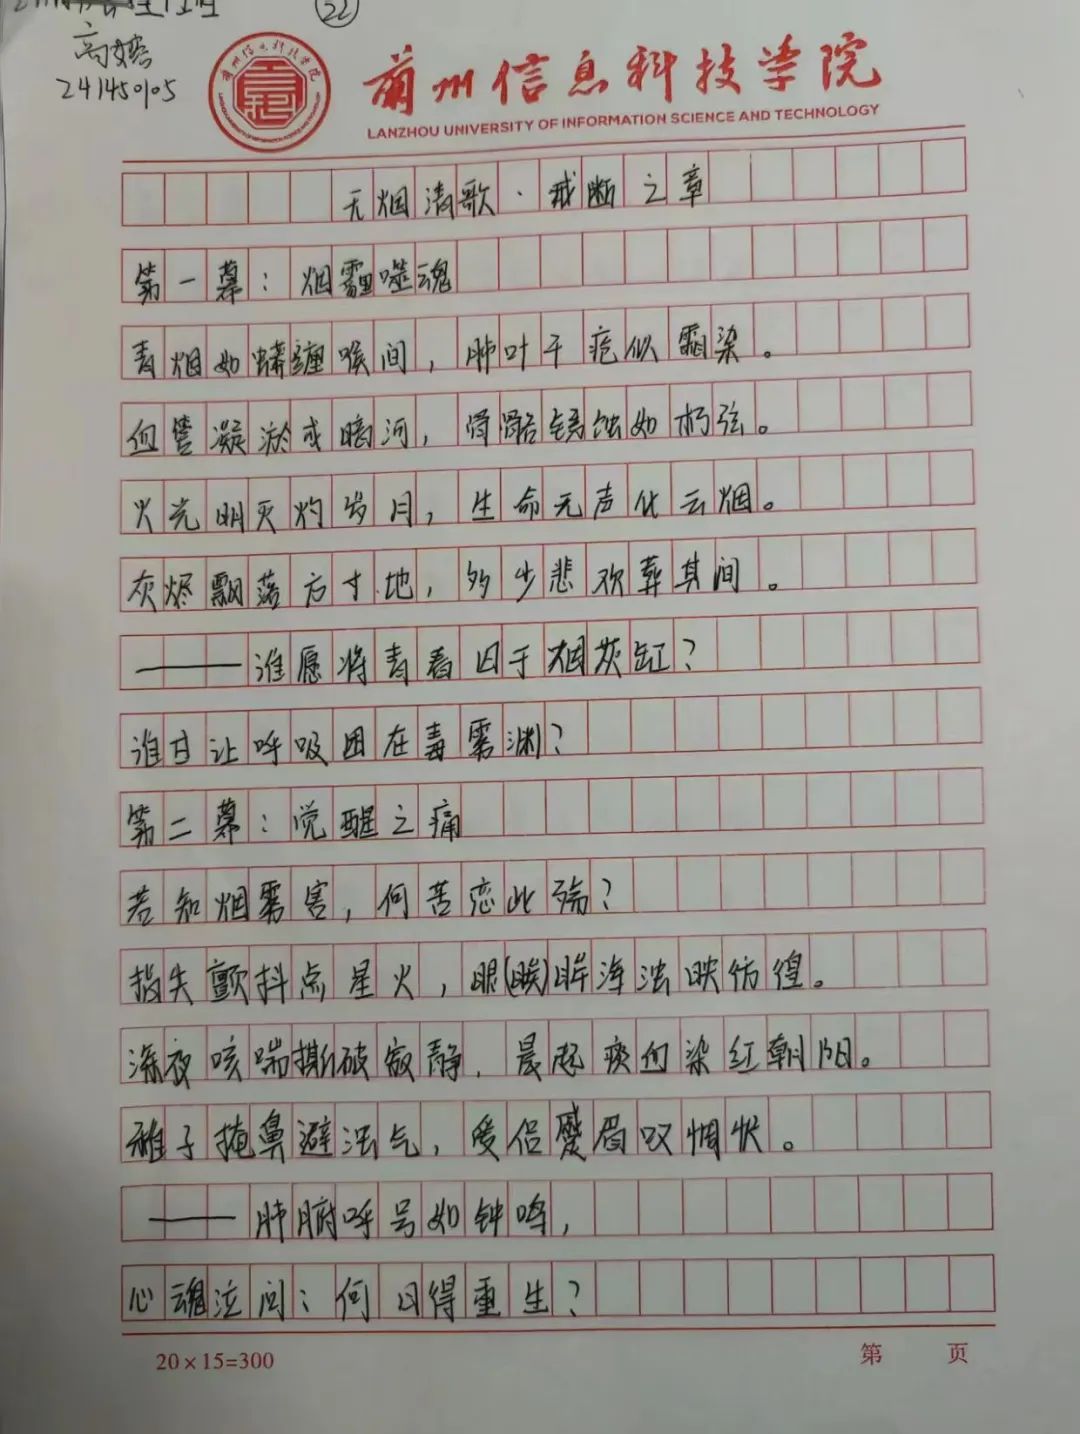 ㉒
241450105
兰州信息科技学院
LANZHOU UNIVERSITY OF INFORMATION SCIENCE AND TECHNOLOGY
无烟清歌·戒断之章
第一幕：烟霾噬魂
青烟如蟒缠喉间，肺叶千疮似霜染。
血管凝淤成暗河，骨骼锈蚀如朽弦。
火光明灭灼岁月，生命无声化云烟。
灰烬飘落方寸地，多少悲欢葬其间。
——谁愿将青春囚于烟灰缸？
谁甘让呼吸困在毒雾渊？
第二幕：觉醒之痛
若知烟雾害，何苦恋此殇？
指尖颤抖点星火，眼(眸)眸浑浊映彷徨。
深夜咳喘撕破寂静，晨起痰血染红朝阳。
稚子掩鼻避浊气，爱侣蹙眉叹惆怅。
——肺腑呼号如钟鸣，
心魂泣问：何日得重生？
20×15=300
第 页